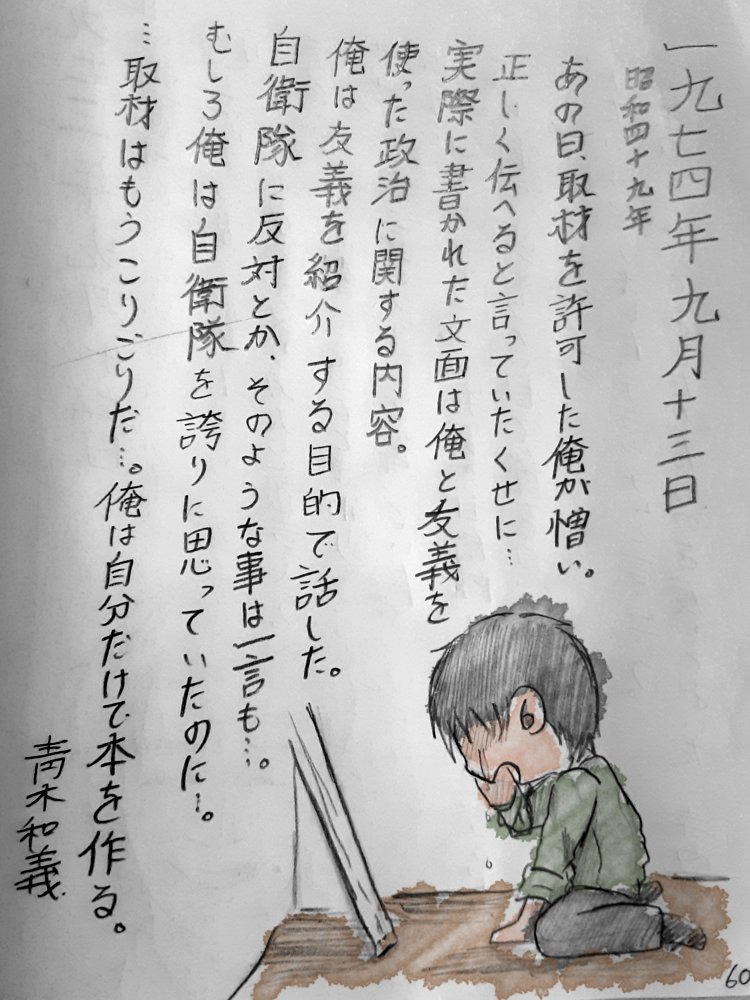 一九七四年九月十三日
昭和四十九年
あの日、取材を許可した俺が憎い。
正しく伝へると言っていたくせに…
実際に書かれた文面は俺と友義を
使った政治に関する内容。
俺は友義を紹介する目的で話した。
自衛隊に反対とか、そのような事は一言も…。
むしろ俺は自衛隊を誇りに思っていたのに…。
…取材はもうこりごりだ…。俺は自分だけで本を作る。
青木和義
60